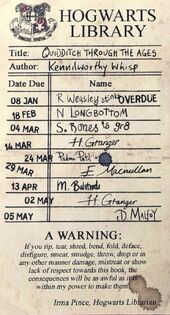 HOGWARTS
LIBRARY
Title: QUIDDITCH THROUGH THE AGES
Author: Kennilworthy Whisp
Date Due Name
08 JAN R Weasley stinks OVERDUE
18 FEB N LONGBOTTOM
04 MAR S. Bones is gr8
14 MAR H. Granger
24 MAR Padma Patil
29 MAR E Macmillan
13 APR M. Bulstrode
02 MAY H. Granger
05 MAY D. Malfoy
A WARNING:
If you rip, tear, shred, bend, fold, deface,
disfigure, smear, smudge, throw, drop or in
any other manner damage, mistreat or show
lack of respect towards this book, the
consequences will be as awful as it is
within my power to make them.
Irma Pince, Hogwarts Librarian